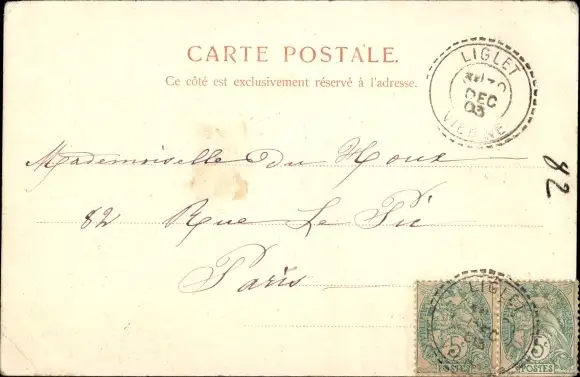 CARTE POSTALE.
Ce côté est exclusivement réservé à l'adresse.
LIGLET
DEC
03
VIENNE
Mademoiselle du Houx
82 Rue Le Pic
Paris
82
LIGLET
DEC
5c 5c
POSTES POSTES